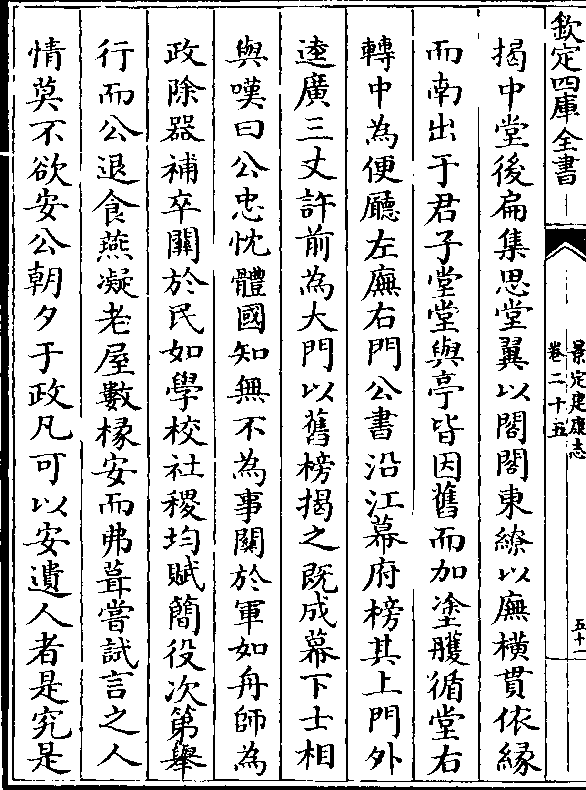 欽定四庫全書
景定建康志
卷二十五
五十一
揭中堂後扁集思堂翼以閣閣東繚以廡橫貫依緣
而南出于君子堂堂與亭皆因舊而加塗雘循堂右
轉中為便廳左廡右門公書沿江幕府榜其上門外
逵廣三丈許前為大門以舊榜揭之既成幕下士相
與嘆曰公忠忱體國知無不為事關於軍如舟師為
政除器補卒關於民如學校社稷均賦簡役次第舉
行而公退食燕凝老屋數椽安而弗葺嘗試言之人
情莫不欲安公朝夕于政凡可以安遺人者是究是